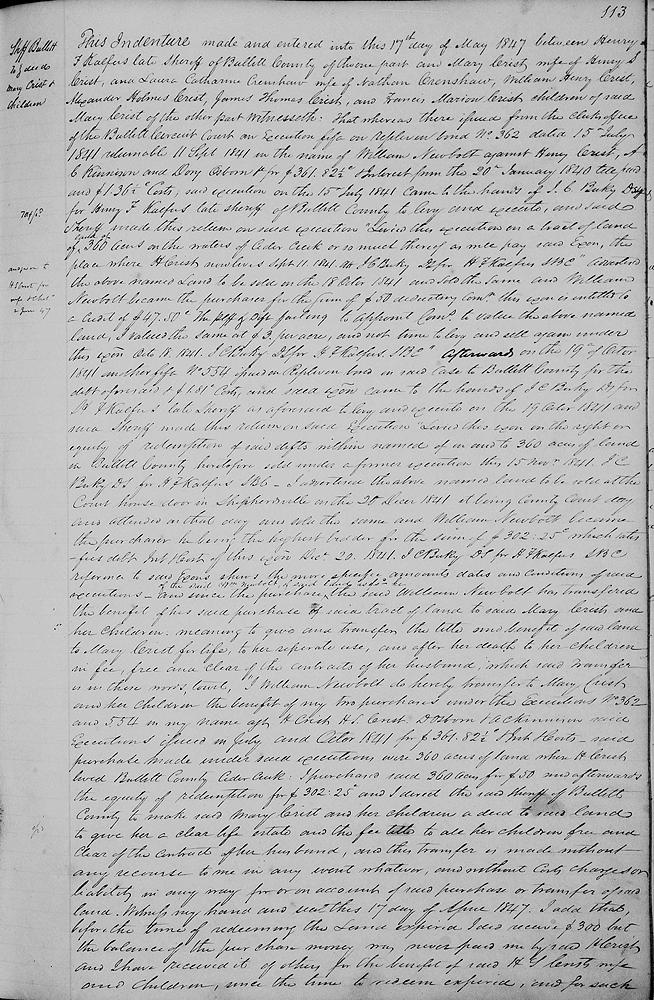 113
Shff Bullett
To } deed
Mary Crist &
children
This Indenture made and entered into this 17th day of May 1847 between Henry
F Kalfus late Sheriff of Bullett County of the one part and Mary Crist wife of Henry S
Crist, and Laura Catharine Crenshaw wife of Nathan Crenshaw, William Henry Crist,
Alexander Holmes Crist, James Thomas Crist, and Francis Marion Crist children of said
Mary Crist of the other part Witnesseth: That whereas there issued from the clerks office
of the Bullett Circuit Court an Execution fifa on Replevin bond No. 362 dated 15th July
1841 returnable 11 Sept 1841 in the name of William Newbolt against Henry Crist, A
C Kinnison and Dory Osborn & for $361.82½ Interest from the 20th January 1840 till paid
and $1.36½ Costs, said execution on the 15 July 1841 came to the hands of J. C Burky
for Henry F Kalfus late sheriff of Bullett County to levy and execute, and said
Sheriff made this return on said execution "Levied this execution on a tract of land
of 360 acres on the waters of Ceder Creek or so much thereof as will pay said Exon, the
place where H Crist now lives Sept 11. 1841. J C Burky DS for H F Kalfus SBC" Advertised
the above named Land to be sold on the 18 Octor 1841 and sold the same and William
Newbolt became the purchaser for the sum of $50 deducting this exon is entitled to
a Credit of $47.50 The plff & deft failing to appoint Coms. to value the above named
land, I valued the same at $3. per acre, and not time to levy and sell again under
this exon Octo 18. 1841. J C Burky DS for H F Kalfus SBC" Afterwards on the 19th of Octor
1841 another fifa No 554 issued on Replevin bond in said case to Bullett County for the
debt aforesaid & Costs, and said exon came to the hands of J C Burky DS for
H F Kalfus late sheriff as aforesaid to levy and execute on the 19 Octor 1841 and
said Sheriff made this return on said Execution "Levied this exon on the right or
equity of redemption of said defts within named of in and to 360 acres of land
in Bullett County heretofore sold under a former execution this 15 Novr 1841. J C
Burky DS for H F Kalfus SBC - I advertised the above named land to be sold at the
Court house door in Shepherdsville on the 20 Decer 1841 it being County Court day
and attended on that day and sold the same and William Newbolt became
the purchaser he being the highest bidder for the sum of $302.25 which satis
fies debt Int & Costs of this exon Dec. 20. 1841. J C Burky DS for H F Kalfus SBC
reference to said Exons shows the more specific amounts dates and conditions of said
executions - and since the purchase, the said William Newbolt has transferred
the benefit of his said purchase of said tract of land to said Mary Crist and
her Children: meaning to give and transfer the title and benefit of said land
to Mary Crist for life, to her seperate use, and after her death to her children
in fee, free and clear of the contracts of her husband; which said transfer
is in these words, towit, I William Newbolt do hereby transfer to Mary Crist
and her children the benefit of my two purchases under the Executions No 362
and 554 in my name agt H Crist H S. Crist D Osborn & A C Kinnison said
Executions issued in July and Octor 1841 for $361.82½ & Int & Costs - said
purchase made under said executions were 360 acres of land where H Crist
lived Bullett County Ceder Creek: I purchased said 360 acres for $50 and afterwards
the equity of redemption for $302.25 and I direct the said Sheriff of Bullett
County to make said Mary Crist and her children a deed to said land
to give her a clear life estate and the fee title to all her children free and
clear of the contract of her husband, and this transfer is made without
any recourse to me in any event whatever, and without Costs charges or
liability in any way for or on account of said purchase or transfer of said
land. Witness my hand and seal this 17 day of April 1847. I add that,
before the time of redeeming the Land expired I did receive $300 but
the balance of the purchase money was never paid me by said H Crist
and I have received it of others for the benefit of said H S Crists wife
and Children, since the time to redeem expired, and for such